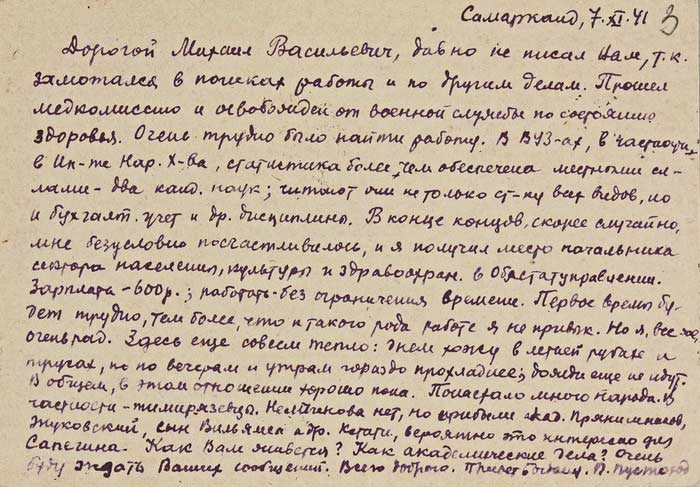 Самарканд, 7.XI.41 3
Дорогой Михаил Васильевич, давно не писал Вам, т.к.
замотался в поисках работы и по другим делам. Прошел
медкомиссию и освобожден от военной службы по состоянию
здоровья. Очень трудно было найти работу. В ВУЗ-ах, в частности
в Ин-те Нар. Х-ва, статистика более чем обеспечена местными си-
лами - два канд. наук; читают они не только ст-ку всех видов, но
и бухгалт. учет и др. дисциплины. В конце концов, скорее случайно,
мне безусловно посчастливилось, и я получил место начальника
сектора населения, культуры и здравоохран. в Облстатуправлении.
Зарплата - 600р.; работать - без ограничения времени. Первое время бу-
дет трудно, тем более, что к такого рода работе я не привык. Но я, все же,
очень рад. Здесь еще совсем тепло: днем хожу в летней рубахе и
трусах, но по вечерам и утрам гораздо прохладнее; дожди еще не идут.
В общем, в этом отношении хорошо пока. Понаехало много народа. В
частности - тимирязевцы. Немчинова нет, но прибыли акад. Прянишников,
Жуковский, сын Вильямса и др. Кстати, вероятно это интересно для
Сапегина. Как Вам живется? Как академические дела? Очень
буду ждать Ваших сообщений. Всего доброго. Привет В.